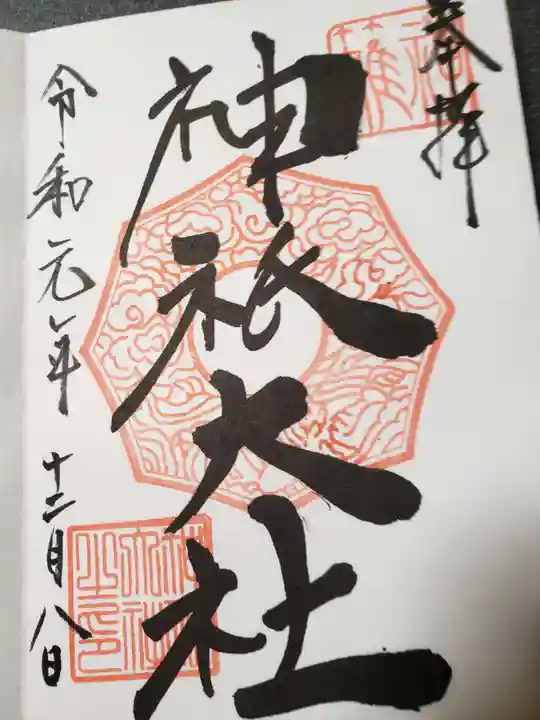 奉拝
神祇大社
令和元年 十二月八日